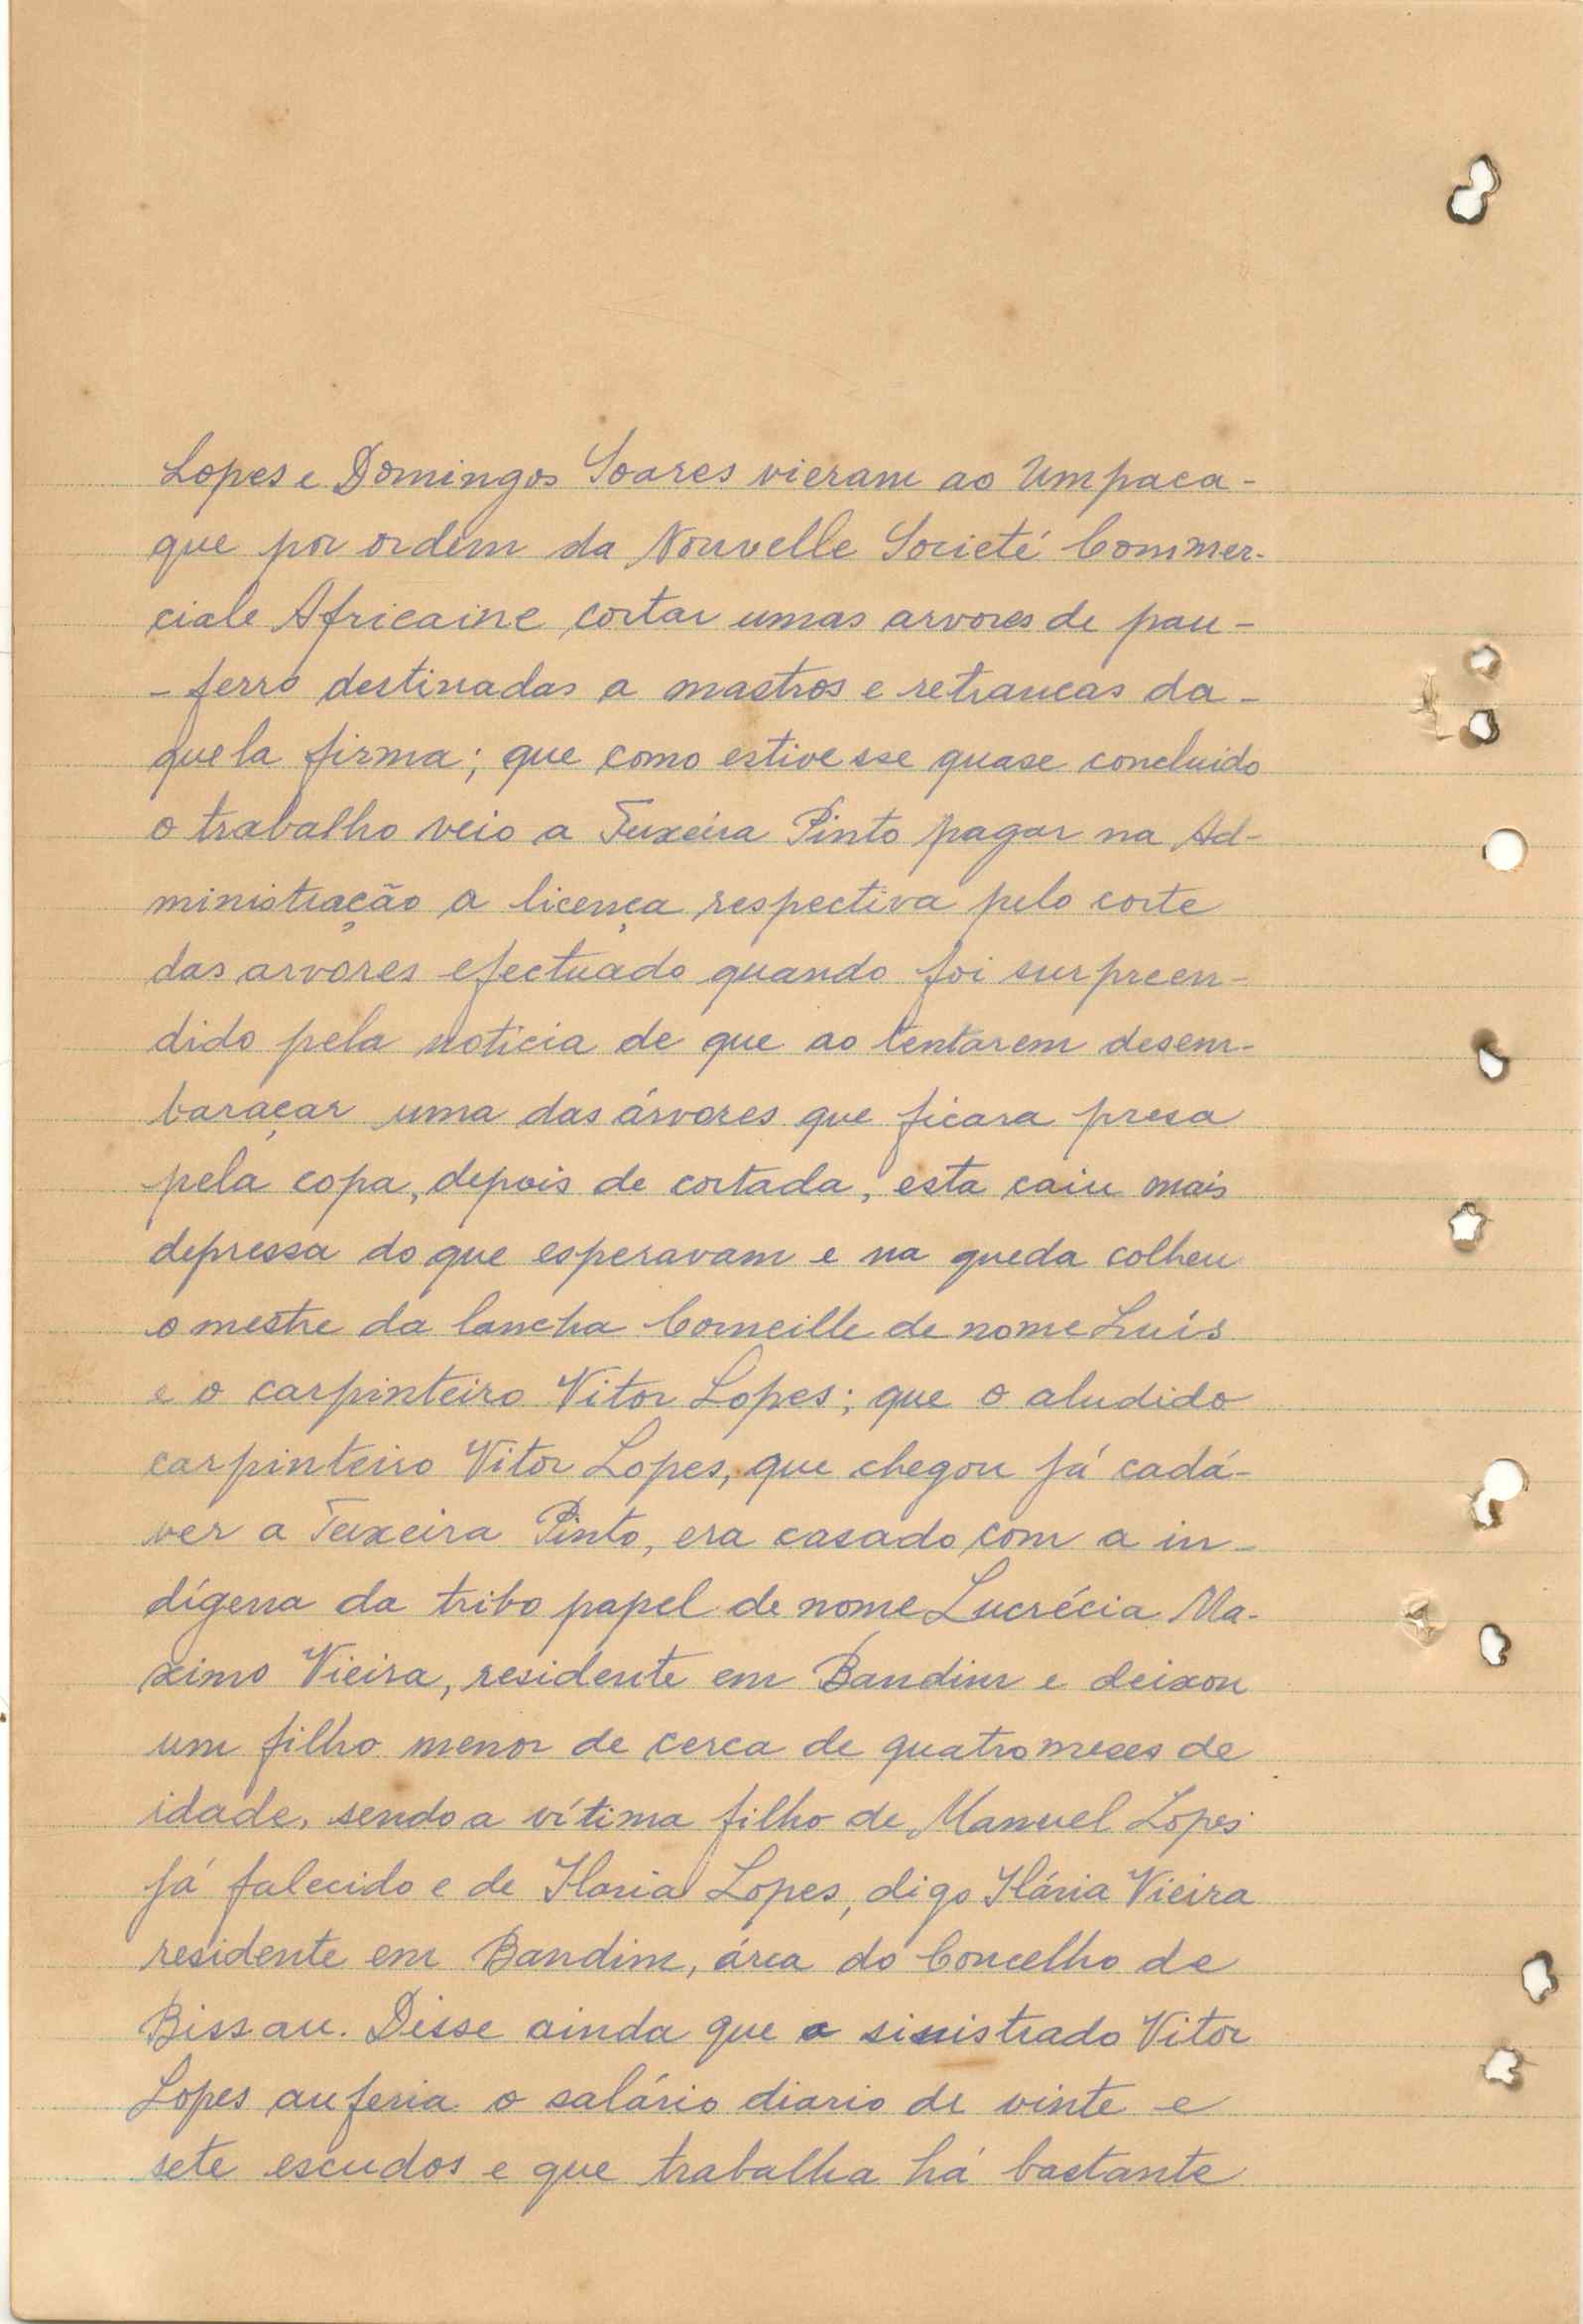 Lopes e Domingos Soares vieram ao Umpaca-
que por ordem da Nouvelle Societé Commer-
ciale Africaine cortar umas arvores de pau-
-ferro destinadas a mastros e retrancas da-
quela firma; que como estivesse quase concluido
o trabalho veio a Teixeira Pinto pagar na Ad-
ministração a licença respectiva pelo corte
das arvores efectuado quando foi surpreen-
dido pela noticia de que ao tentarem desem-
baraçar uma das árvores que ficara presa
pela copa, depois de cortada, esta caiu mais
depressa do que esperavam e na queda colheu
o mestre da lancha Corneille de nome Luís
e o carpinteiro Vitor Lopes; que o aludido
carpinteiro Vitor Lopes, que chegou já cadá-
ver a Teixeira Pinto, era casado com a in-
dígena da tribo papel de nome Lucrécia Ma-
ximo Vieira, residente em Bandim e deixou
um filho menor de cerca de quatro meses de
idade, sendo a vítima filho de Manuel Lopes
já falecido e de Ilaria Lopes, digo Ilária Vieira
residente em Bandim, área do Concelho de
Bissau. Disse ainda que o sinistrado Vitor
Lopes auferia o salário diario de vinte e
sete escudos e que trabalha há bastante